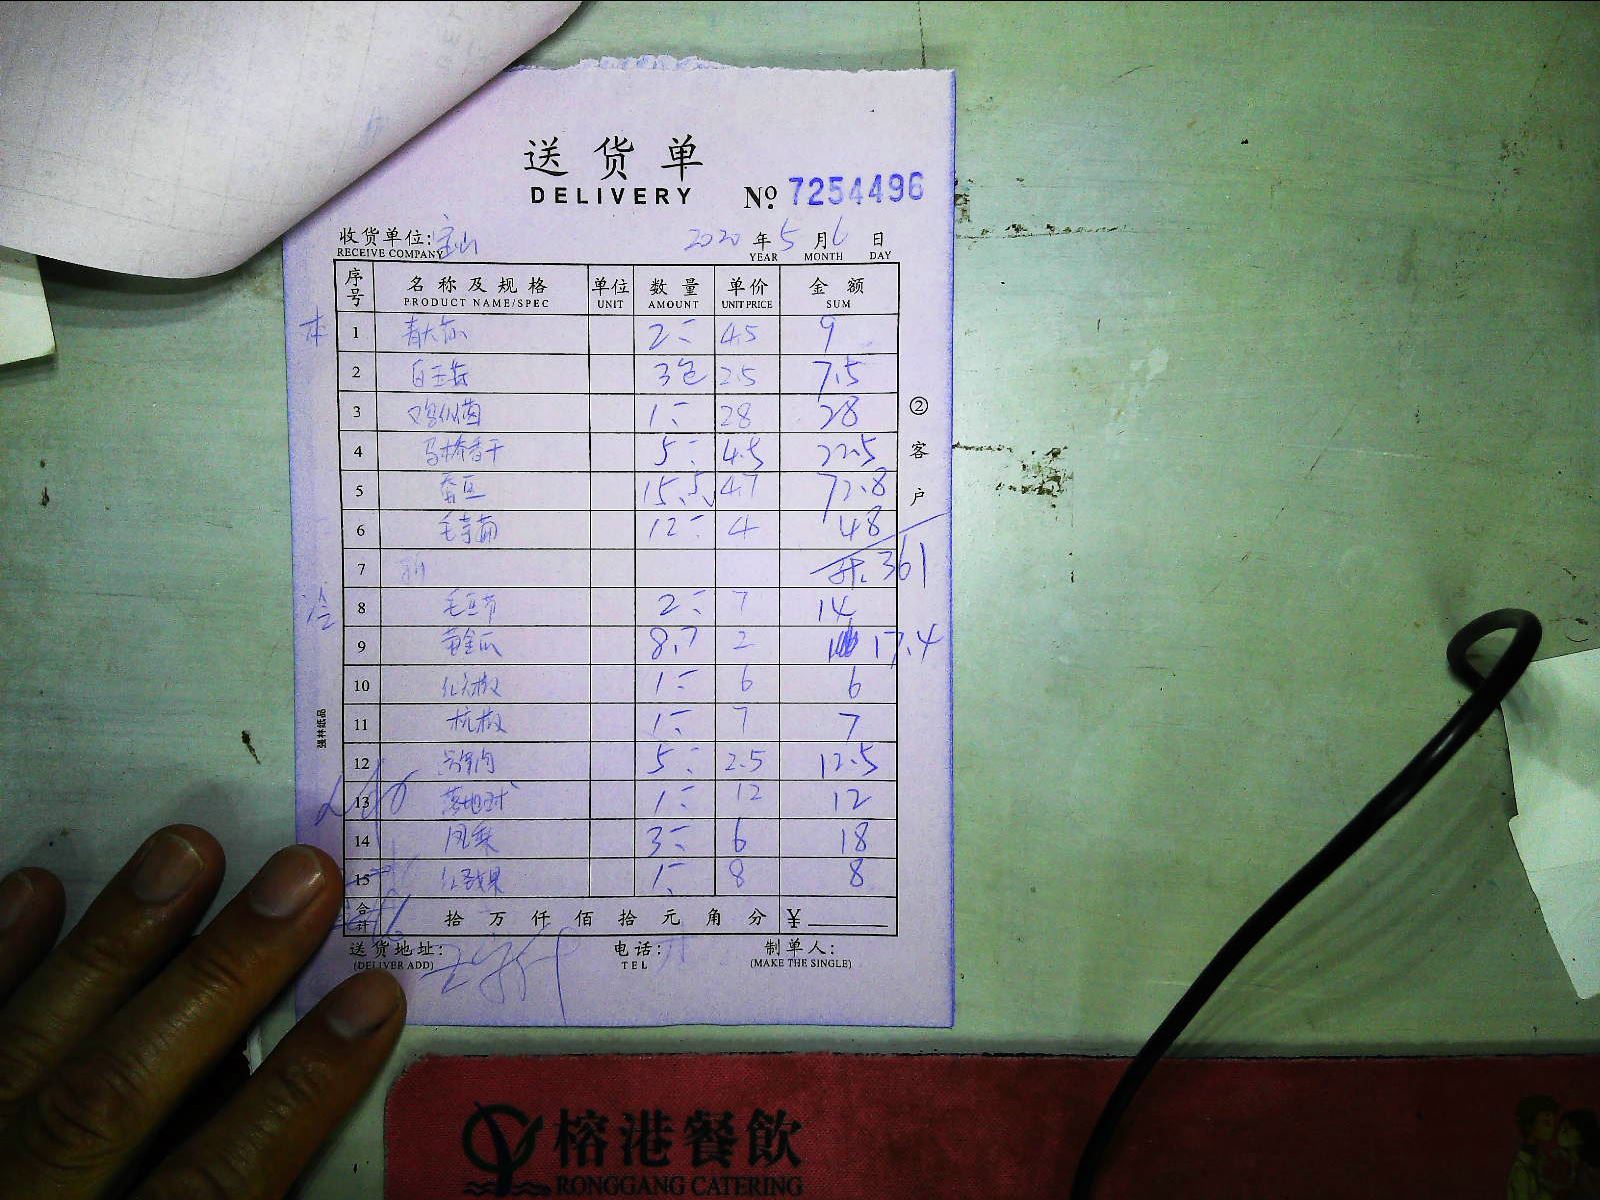 送货单
DELIVERY
№ 7254496
收货单位: 宝山 2020 年 5 月 6 日
RECEIVE COMPANY YEAR MONTH DAY
序号 名称及规格 单位 数量 单价 金额
PRODUCT NAME/SPEC UNIT AMOUNT UNIT PRICE SUM
本 1 青大 2 4.5 9
2 白玉 3包 2.5 7.5
3 鸡枞菌 1 28 28
4 马桥香干 5 4.5 22.5
5 蚕豆 15.5 4.7 72.8
6 毛 12 4 48
7 361
冷 8 毛豆节 2 7 14
9 黄金瓜 8.7 2 17.4
10 红尖椒 1 6 6
11 杭椒 1 7 7
12 5 2.5 12.5
13 落地球 1 12 12
14 3 6 18
15 红 果 1 8 8
合计 拾 万 仟 佰 拾 元 角 分 ¥
送货地址: 电话: 制单人:
(DELIVER ADD) TEL (MAKE THE SINGLE)
② 客户
强林纸品
榕港餐飲
RONGGANG CATERING